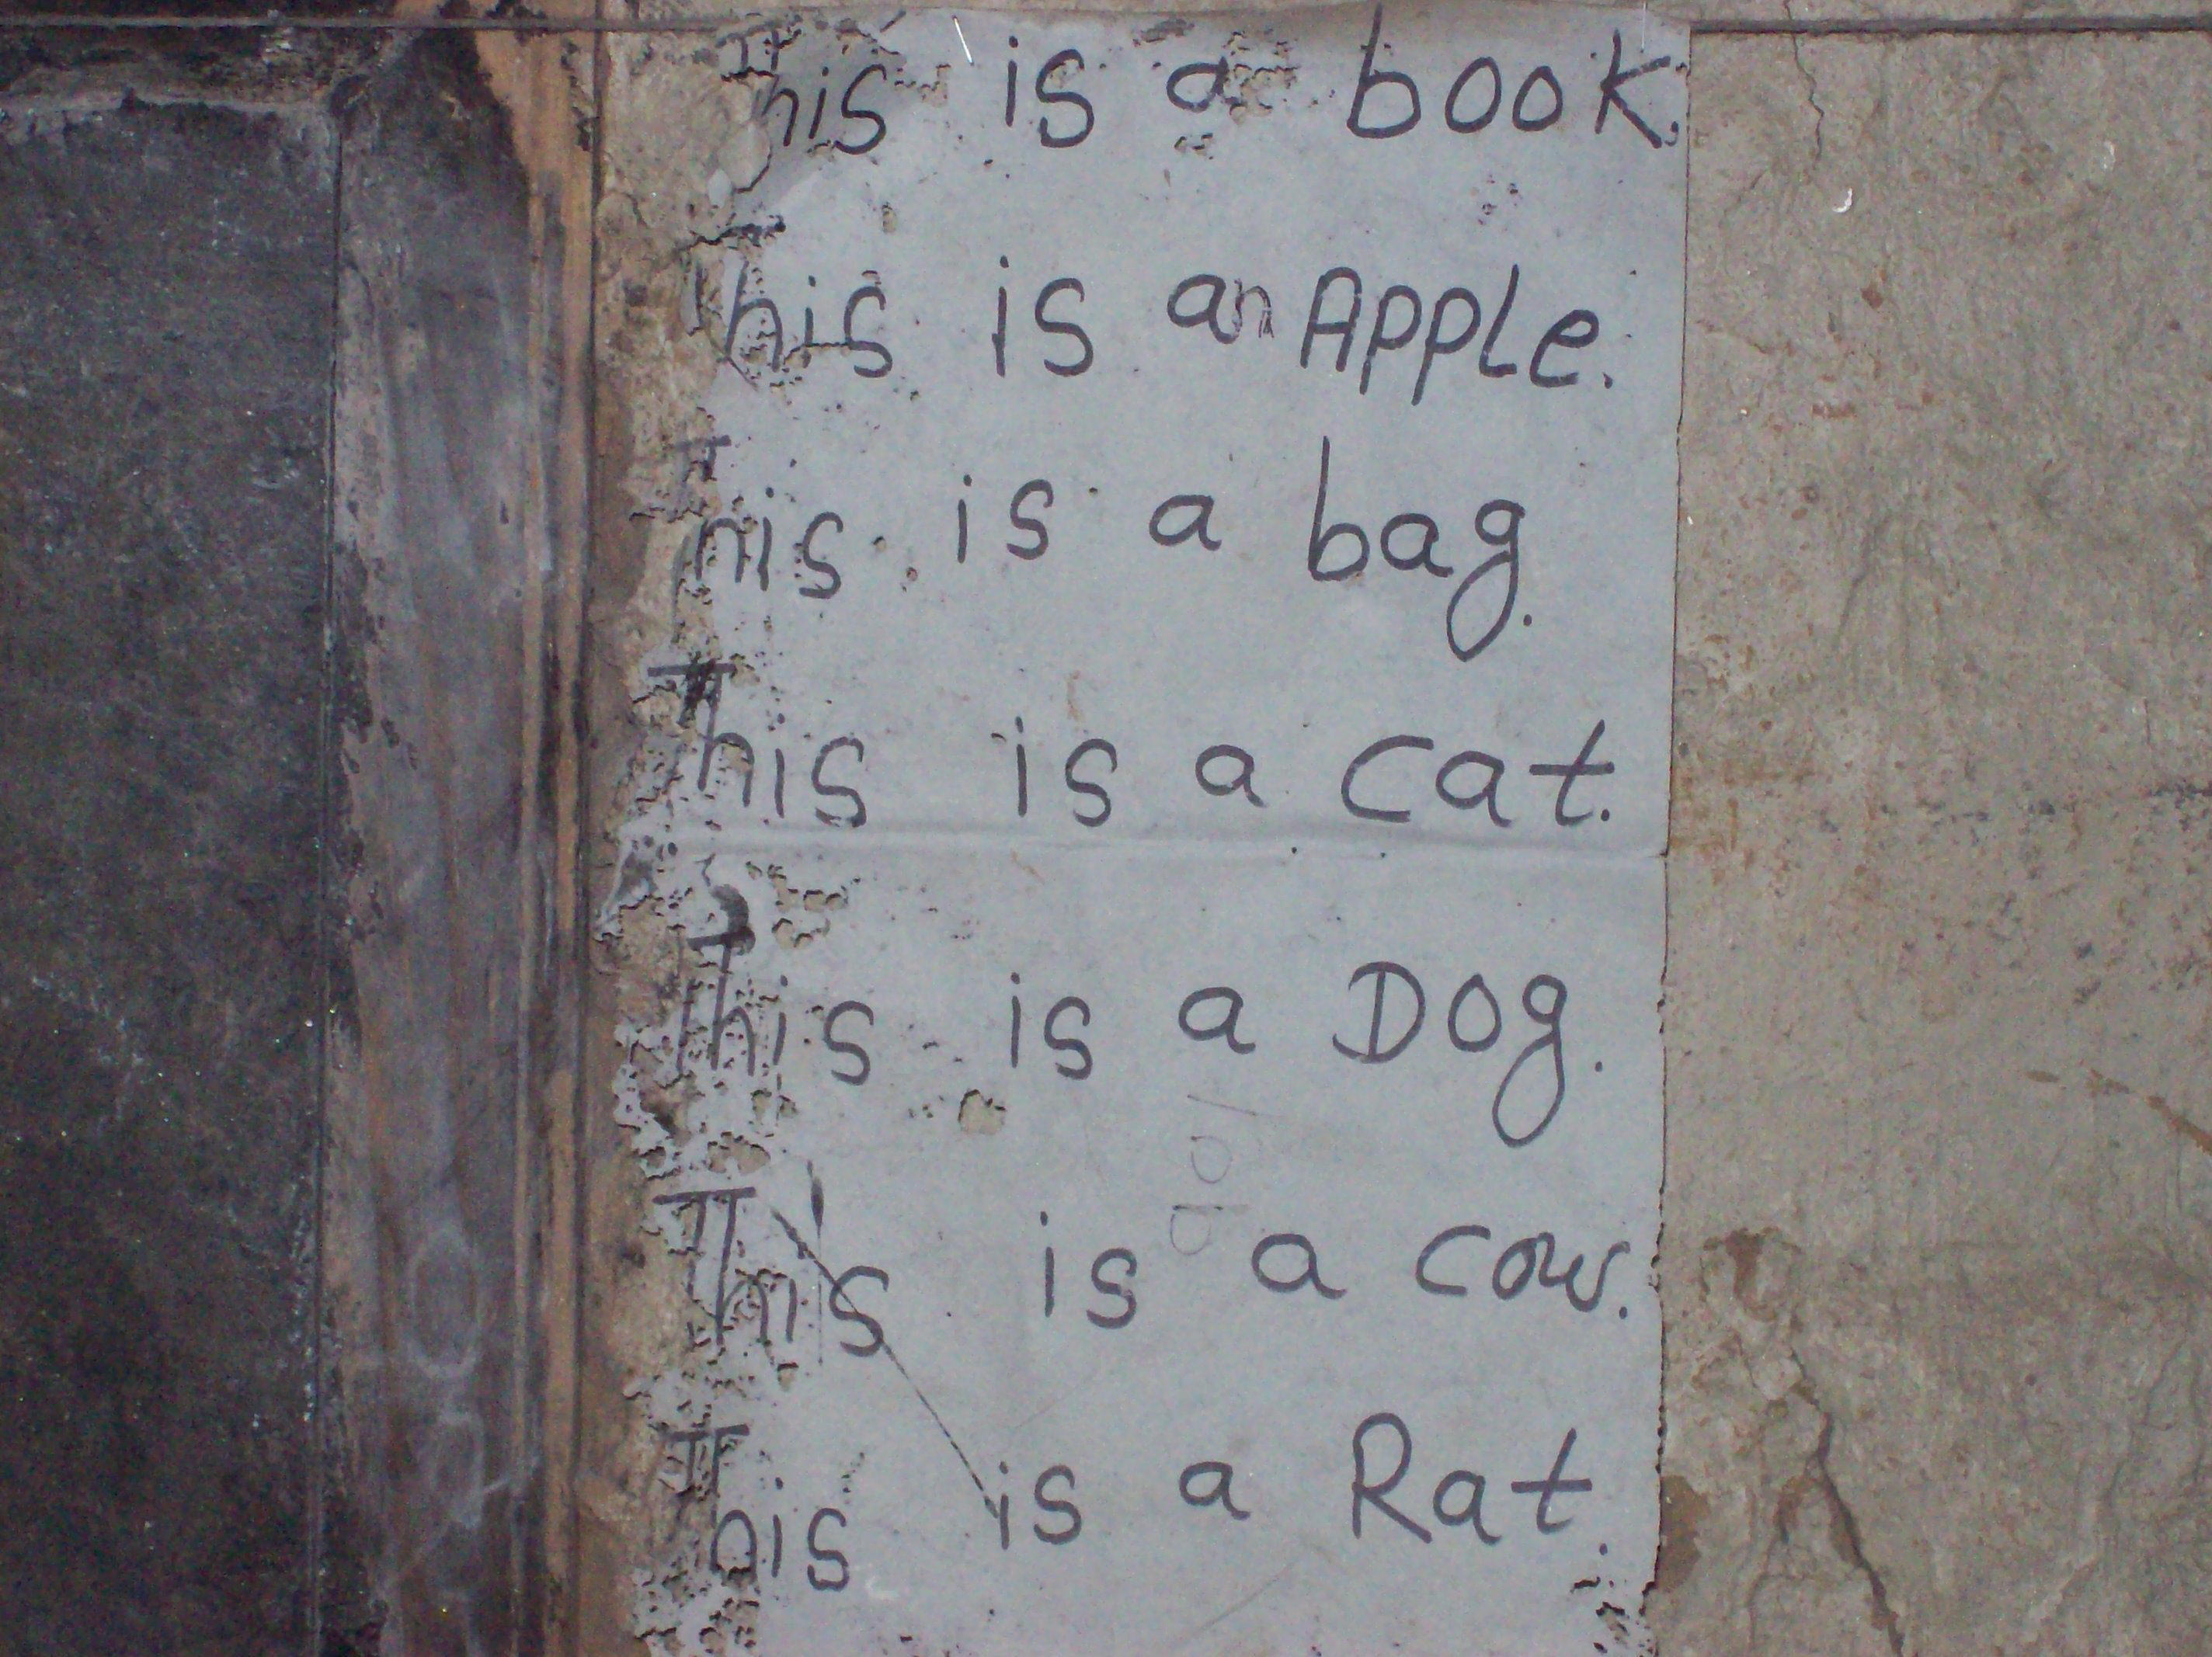 This is a book.
This is an Apple.
This is a bag.
This is a cat.
This is a Dog.
This is a cow.
This is a Rat.